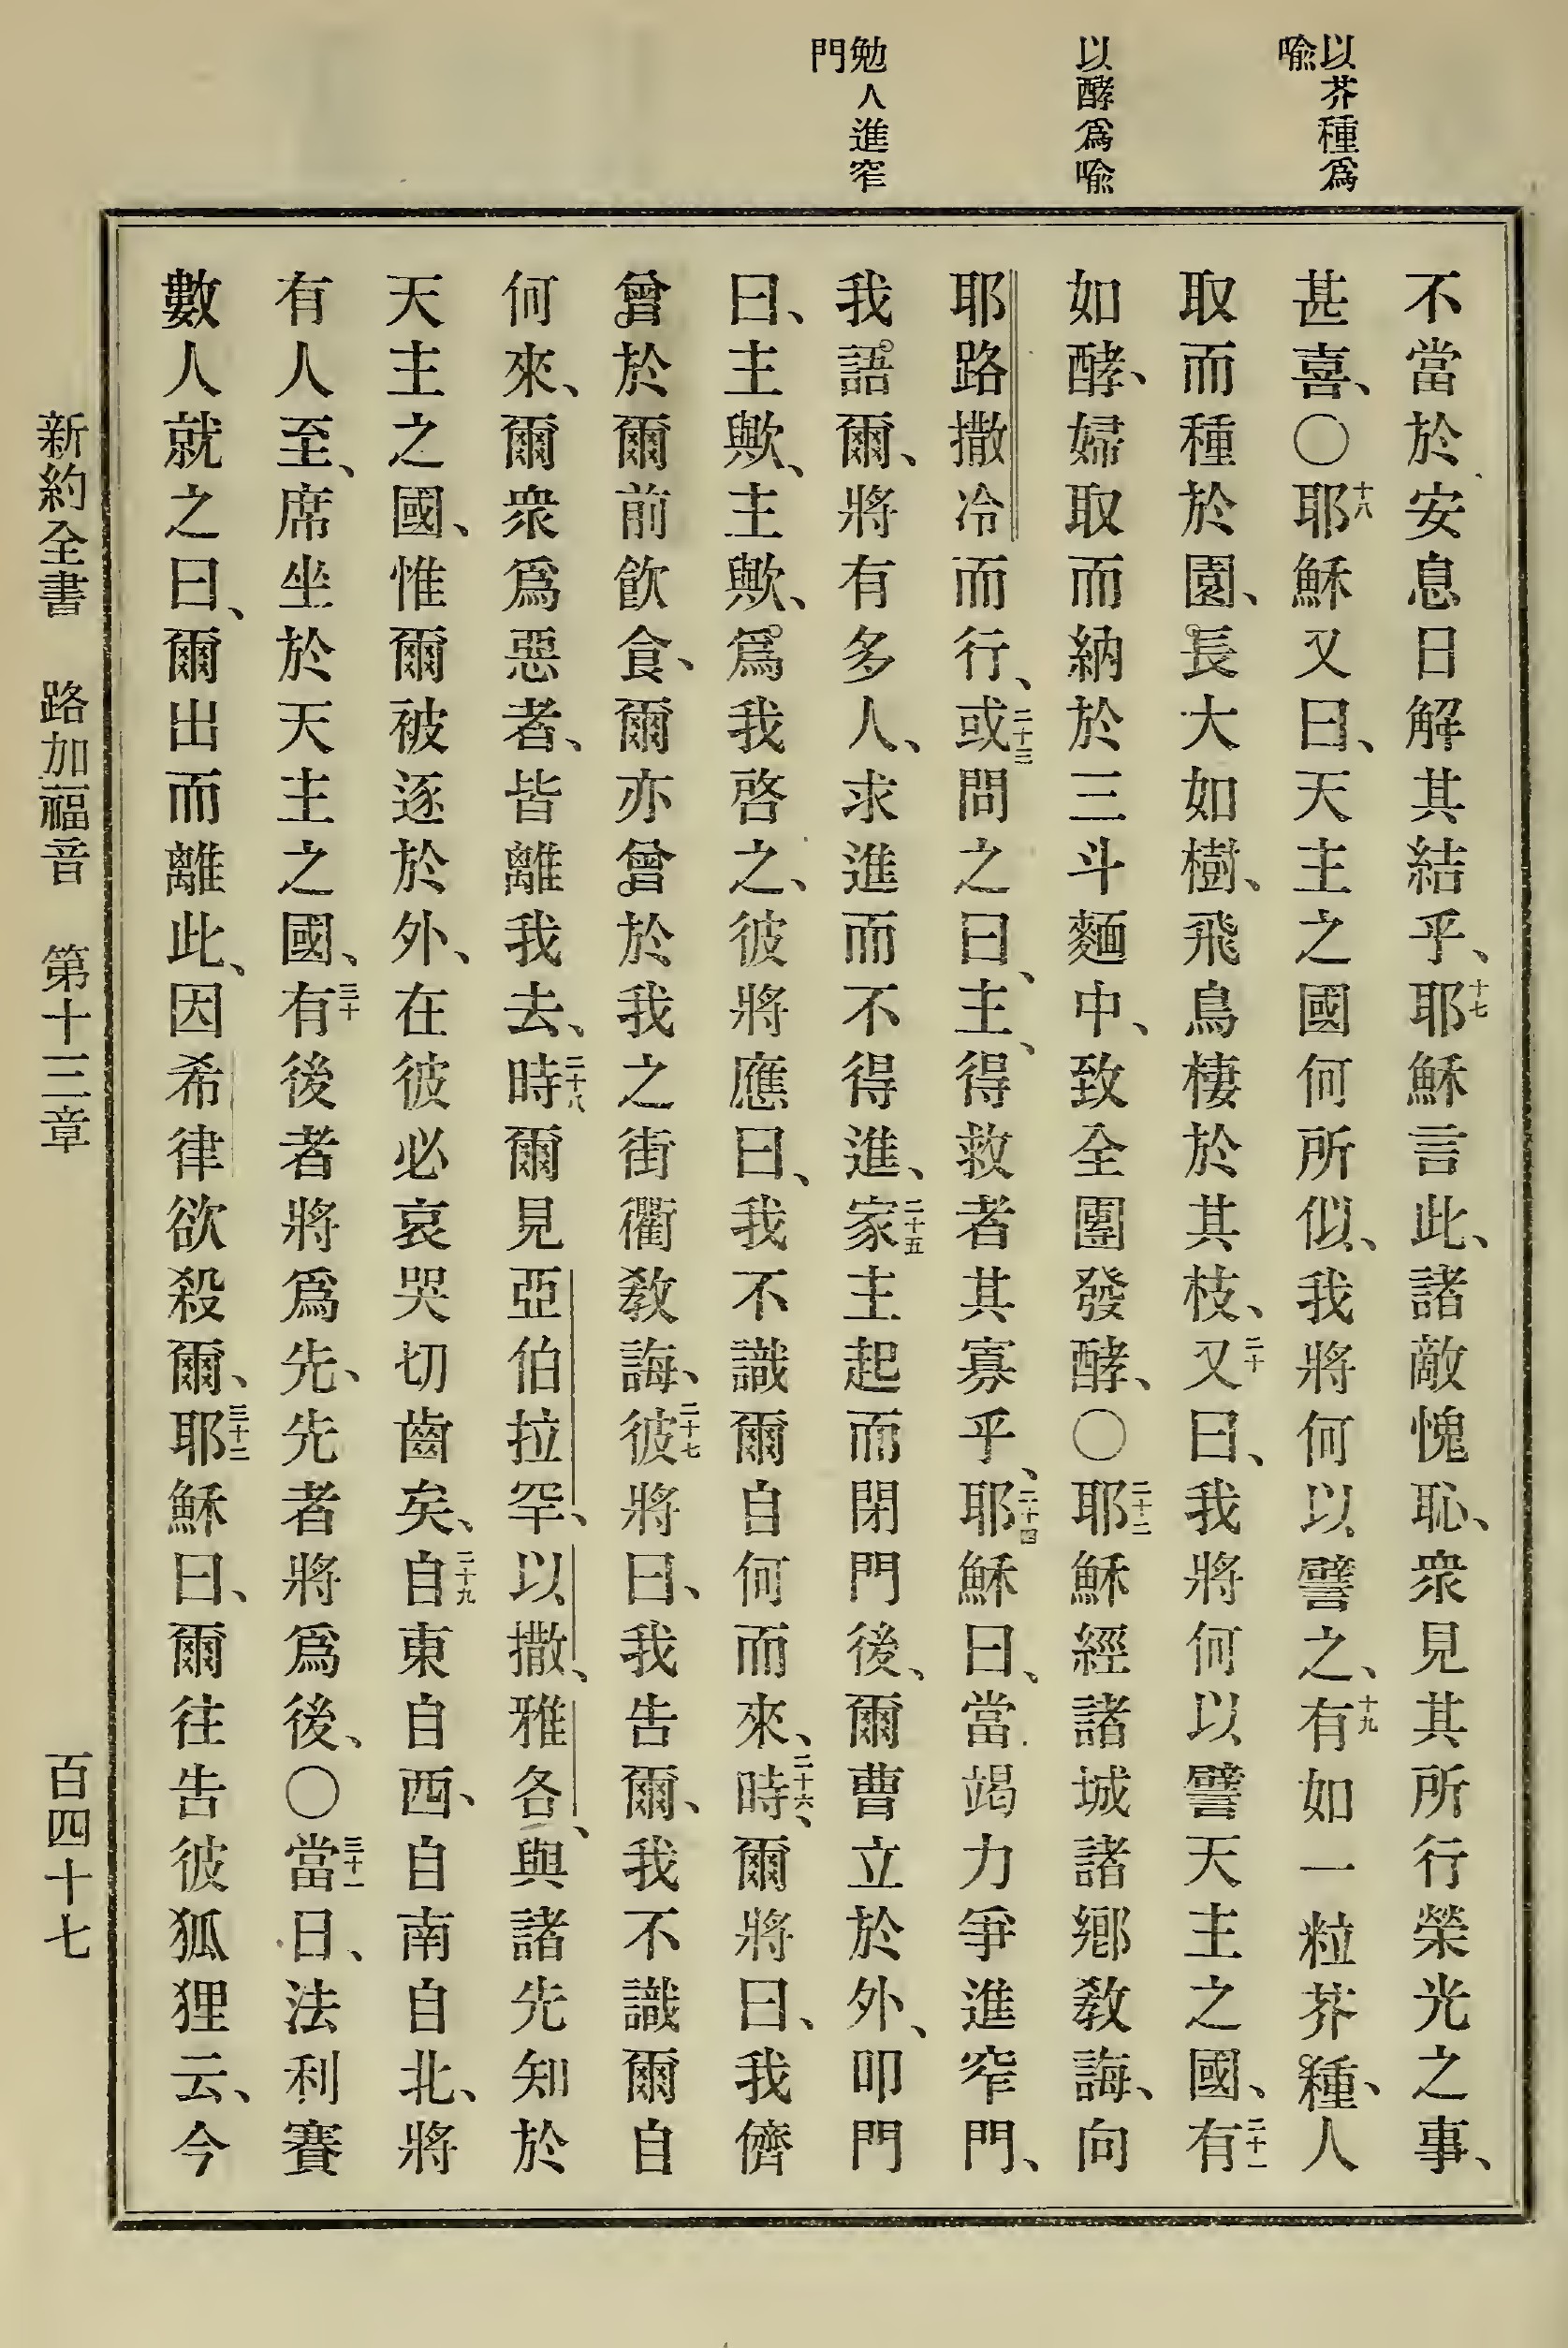 以芥種爲
喻
以酵爲喻
勉人進窄
門
不當於安息日解其結乎、十七耶穌言此、諸敵愧恥、衆見其所行榮光之事、
甚喜、〇十八耶穌又曰、天主之國何所似、我將何以譬之、十九有如一粒芥種、人
取而種於園、長大如樹、飛鳥棲於其枝、二十又曰、我將何以譬天主之國、二十一有
如酵、婦取而納於三斗麵中、致全團發酵、〇二十二耶穌經諸城諸鄉教誨、向
耶路撒冷而行、二十三或問之曰、主、得救者其寡乎、二十四耶穌曰、當竭力爭進窄門、
我語爾、將有多人、求進而不得進、二十五家主起而閉門後、爾曹立於外、叩門
曰、主歟、主歟、爲我啓之、彼將應曰、我不識爾自何而來、二十六時、爾將曰、我儕
曾於爾前飲食、爾亦曾於我之街衢教誨、二十七彼將曰、我告爾、我不識爾自
何來、爾衆爲惡者、皆離我去、二十八時爾見亞伯拉罕、以撒、雅各、與諸先知於
天主之國、惟爾被逐於外、在彼必哀哭切齒矣、二十九自東自西、自南自北、將
有人至、席坐於天主之國、三十有後者將爲先、先者將爲後、〇三十一當日、法利賽
數人就之曰、爾出而離此、因希律欲殺爾、三十二耶穌曰、爾往告彼狐狸云、今
新約全書 路加福音 第十三章 百四十七